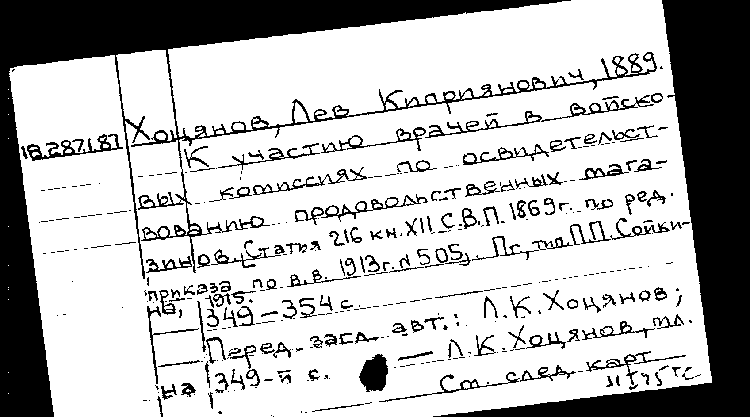 18.287.1.87
Хоцянов, Лев Киприянович, 1889.
К участию врачей в войско-
вых комиссиях по освидетельст-
вованию продовольственных мага-
зинов. [Статья 216 кн. XII С.В.П. 1869г. по ред.
приказа по в.в. 1913г. № 505]. Пг, тип. П.П. Сойки-
на, 1915.
349-354 с.
Перед загл. авт.: Л.К. Хоцянов;
на 349-й с. — Л.К. Хоцянов, мл.
См. след. карт